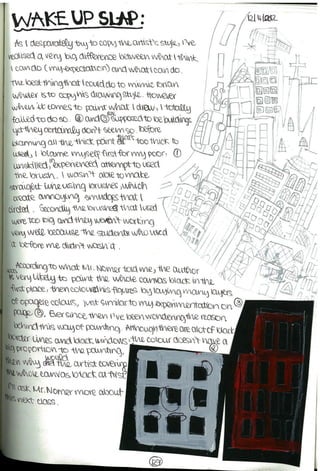 WAKE UP SLAP:
12/4/2012
As I desparately try to copy the artist's style, I've
realised a very big difference between what I think
I can do (my expectation) and what I can do.
The best thing that I could do to mimic Brian
Whelan is to copy his drawing style. However
when it comes to paint what I draw, I totally
failed to do so. Ⓐ and Ⓑ supposed to be buildings
yet they certainly don't seem so. Before
blaming all the thick paint that too thick to
used, I blame myself first for my poor,
unskilled, experienced attempt to used
the brush. I wasn't able to make
straight line using brushes, which
create annoying smudges that I
circled. Secondly the brushes that I used
were too big and they weren't working
very well because the students who used
it before me didn't wash it.
According to what Mr. Nomer told me, the author
is very likely to paint the whole canvas black in the
first place, then colour his figures by laying many layers
of opaque colours, just similar to my experimentation on
page. Ever since then I've been wondering the reason
behind this way of painting. Although there are alot of black
border lines and black windows, the colour doesn't have a
big proportion to the painting,
then why would the artist covering
the whole canvas black at first?
I'll ask Mr. Nomer more about
this next class.